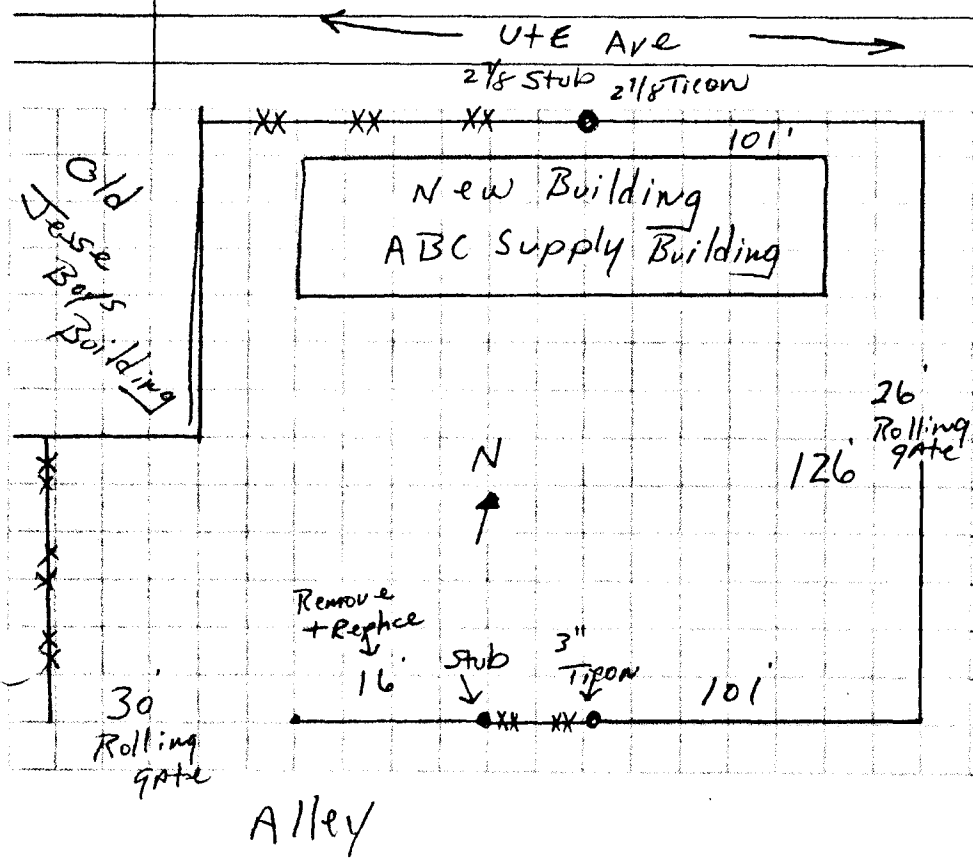 UtE Ave
2 7/8 Stub 2 7/8 Ticon
101'
New Building
ABC Supply Building
Old
Jesse
Boys
Building
26'
Rolling
gAte
126'
N
Remove
+ Replace
16'
Stub
3"
Tieon
101'
30'
Rolling
gAte
Alley